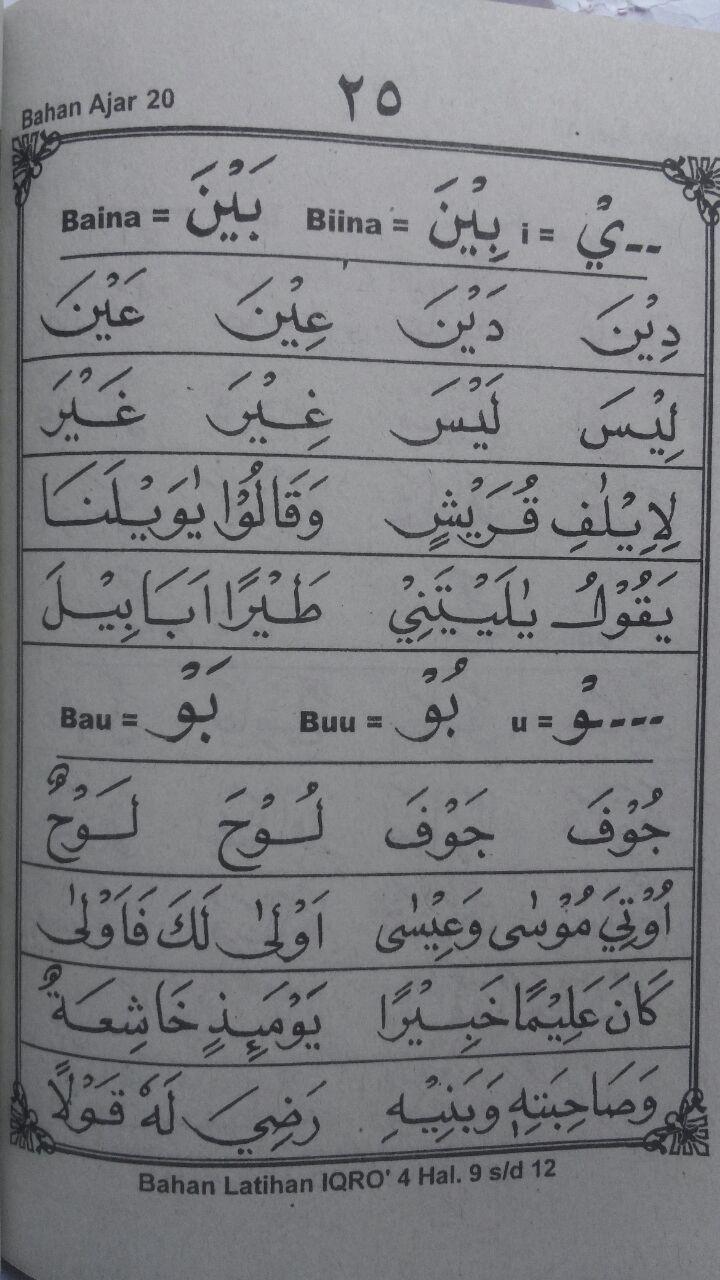 Bahan Ajar 20
٢٥
ـيْ = i بِيْنَ = Biina بَيْنَ = Baina
دِيْنَ دَيْنَ عِيْنَ عَيْنَ
لِيْسَ لَيْسَ غِيْرَ غَيْرَ
لِاِيْلٰفِ قُرَيْشٍ وَقَالُوْا يٰوَيْلَنَا
يَقُوْلُ يٰلَيْتَنِيْ طَيْرًا اَبَابِيْلَ
---ـوْ = u بُوْ = Buu بَوْ = Bau
جُوْفَ جَوْفَ لُوْحَ لَوْحٌ
اُوْتِيَ مُوْسٰى وَعِيْسٰى اَوْلٰى لَكَ فَاَوْلٰى
كَانَ عَلِيْمًا خَبِيْرًا يَوْمَىِٕذٍ خَاشِعَةٌ
وَصَاحِبَتِهٖ وَبَنِيْهِ رَضِيَ لَهٗ قَوْلًا
Bahan Latihan IQRO' 4 Hal. 9 s/d 12